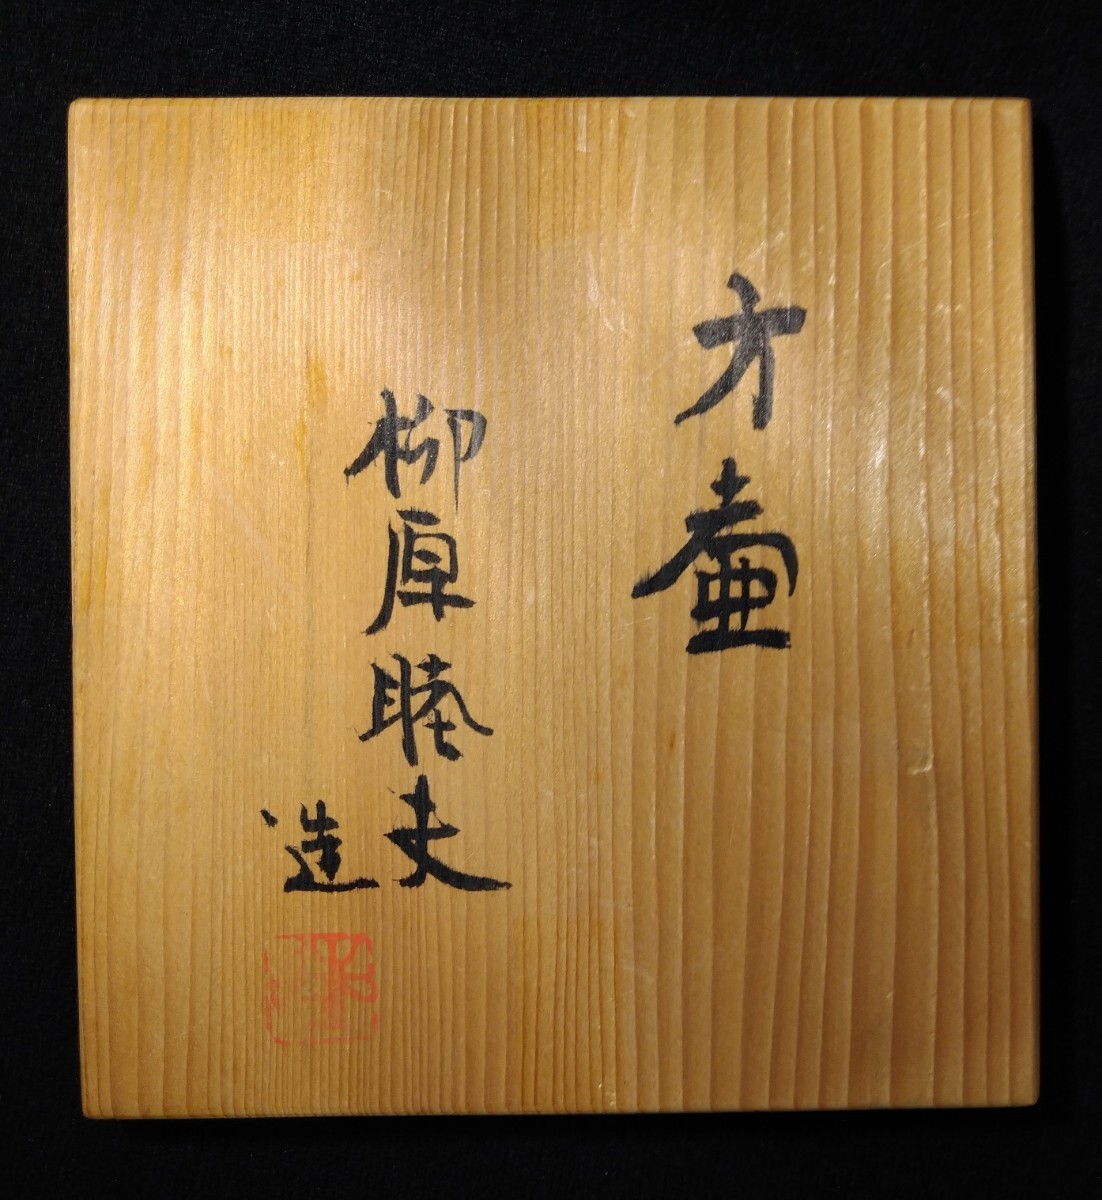 方壷
柳原睦夫
造